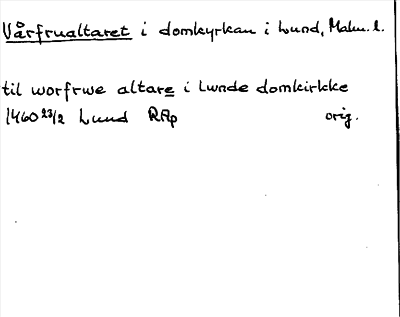 Vårfrualtaret i domkyrkan i Lund, Malm. l.
til worfrwe altare i Lwnde domkirkke
1460 23/2 Lund RAp orig.